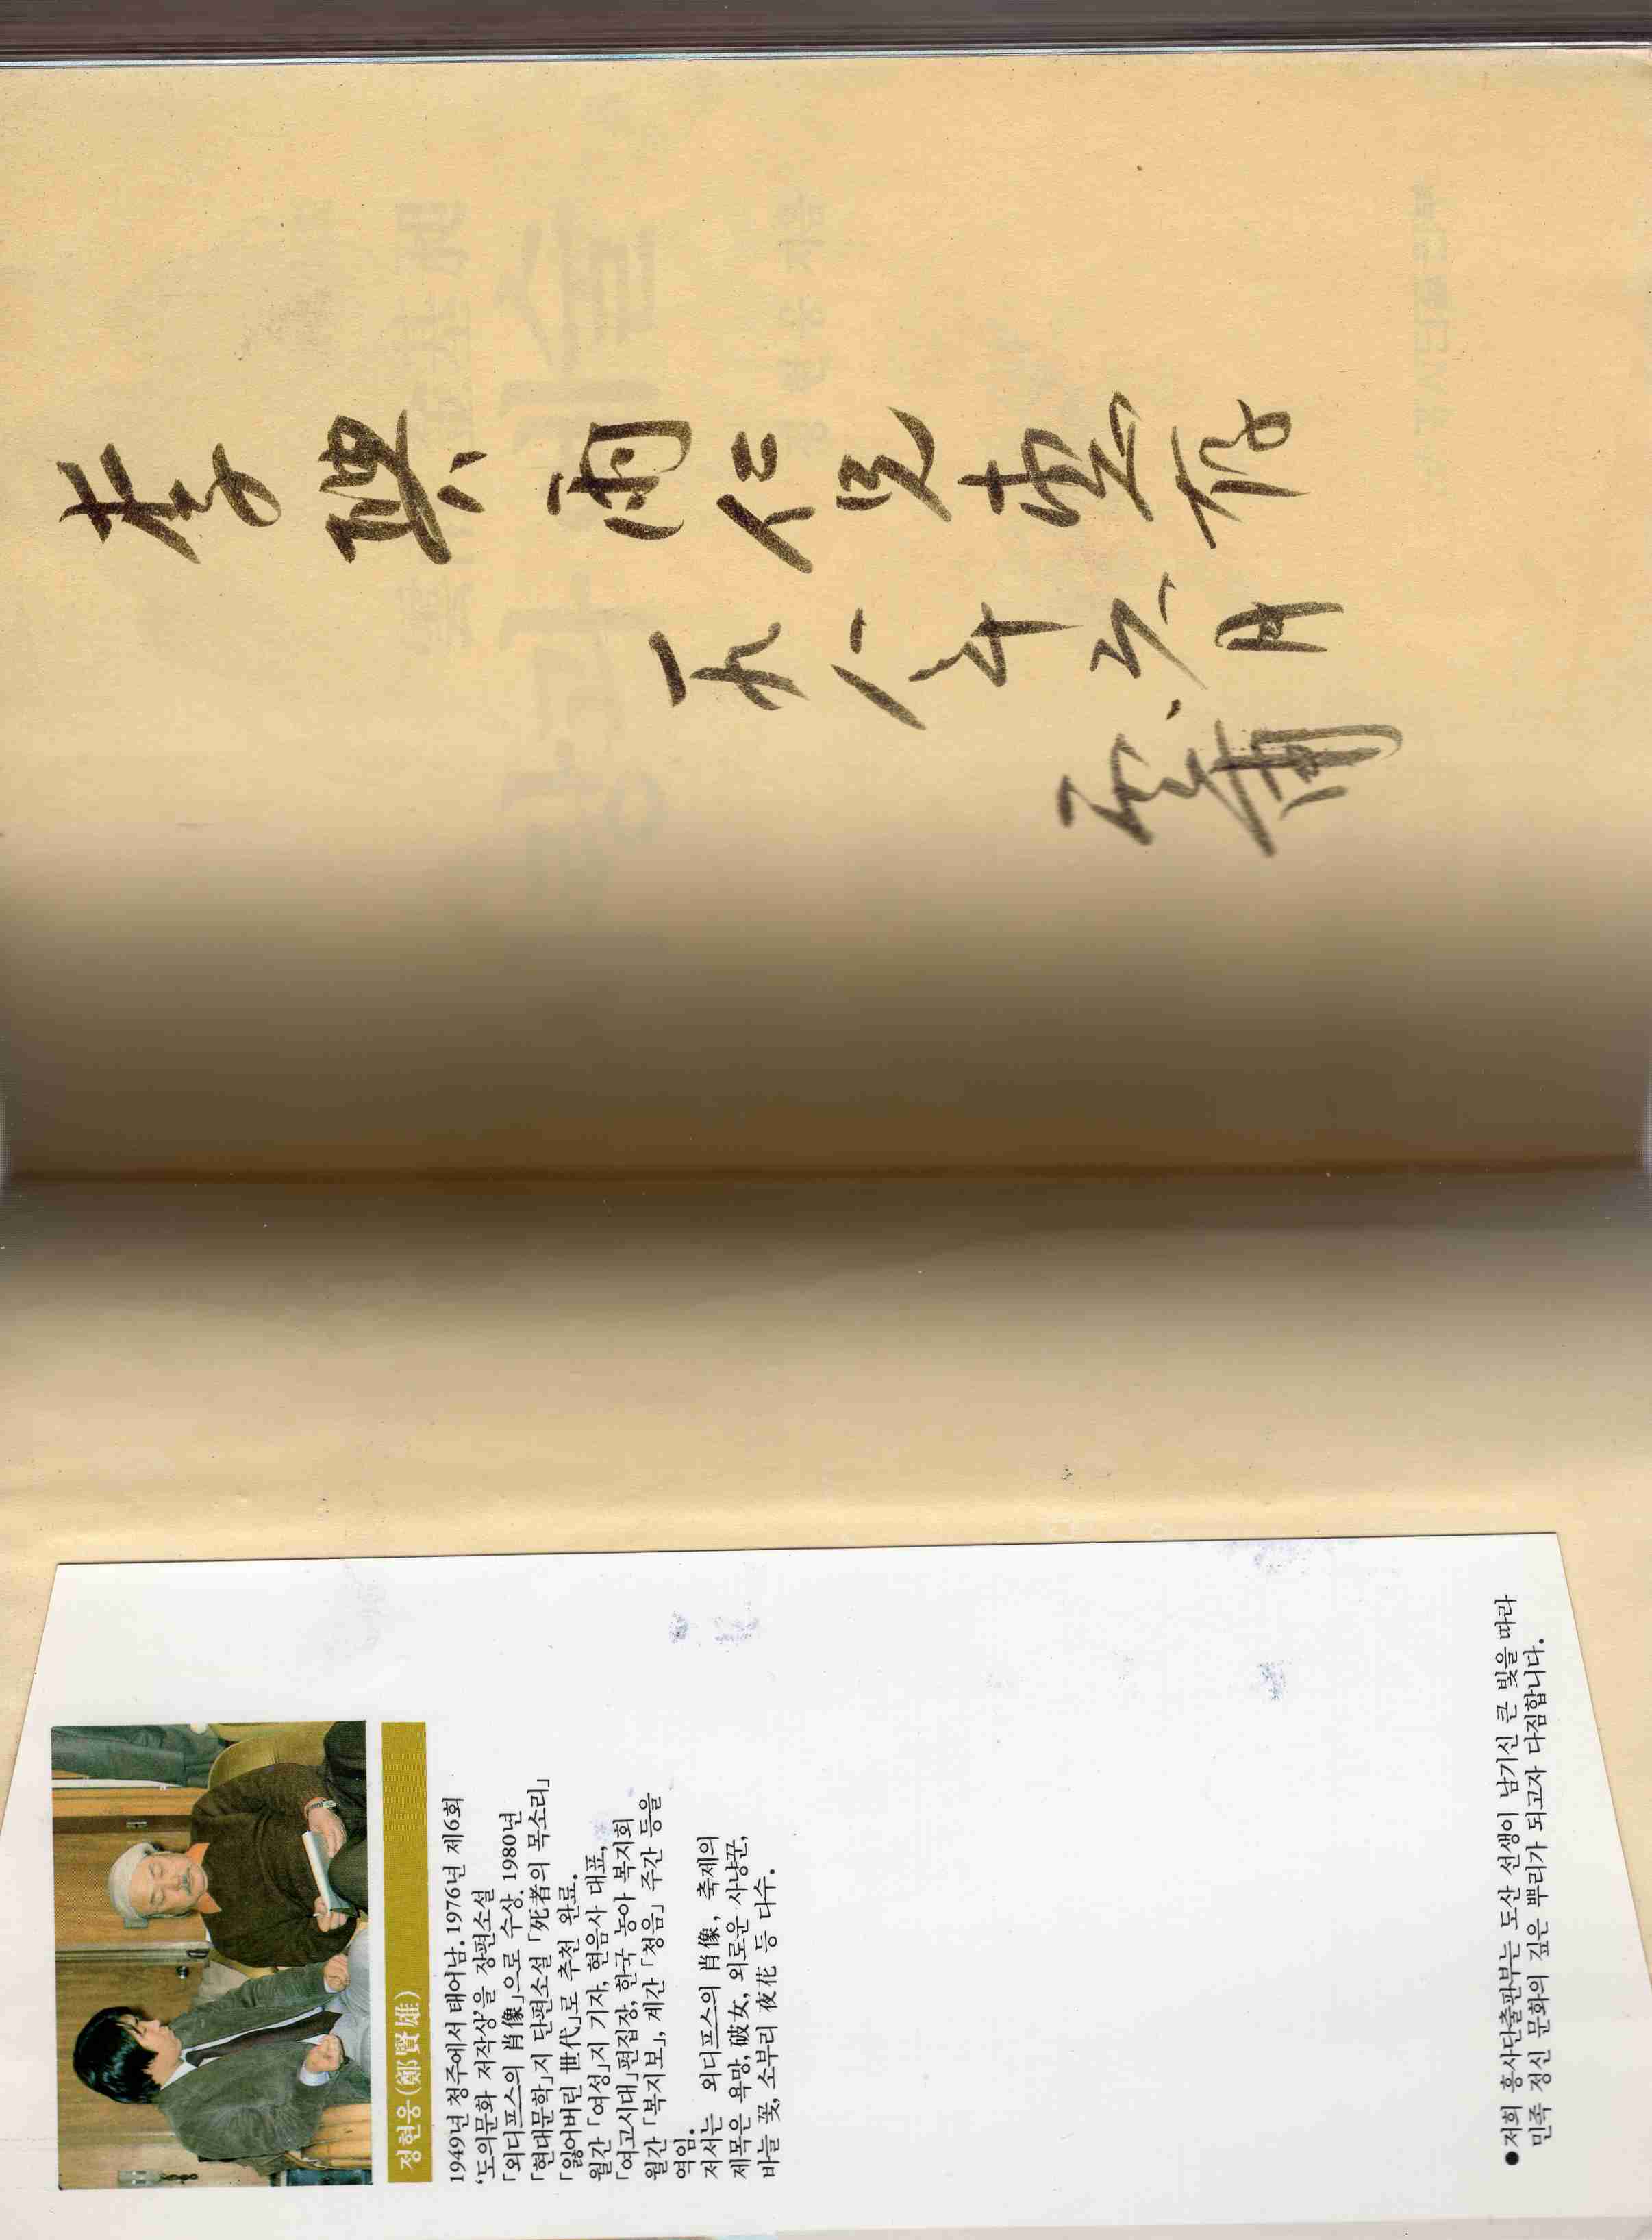 정현웅(鄭賢雄)
1949년 청주에서 태어남. 1976년 제6회
'도의문화 저작상'을 장편소설
「외디프스의 肖像」으로 수상. 1980년
「현대문학」지 단편소설 「死者의 목소리」
「잃어버린 世代」로 추천 완료.
월간 「여성」지 기자, 현음사 대표,
「여고시대」편집장, 한국 농아 복지회
월간 「복지보」, 계간 「청음」 주간 등을
역임.
저서는 외디프스의 肖像, 축제의
제목은 욕망, 破女, 외로운 사냥꾼,
바늘 꽃, 소부리 夜花 등 다수.
●저희 흥사단출판부는 도산 선생이 남기신 큰 빛을 따라
민족 정신 문화의 깊은 뿌리가 되고자 다짐합니다.
李 雨 仁 兄 惠 存
八 年 月